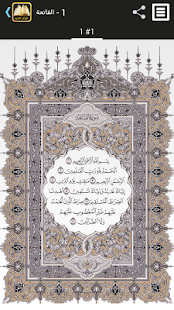 1 - الفاتحة
1 #1
بِسْمِ ٱللَّهِ ٱلرَّحْمَٰنِ ٱلرَّحِيمِ ①
ٱلْحَمْدُ لِلَّهِ رَبِّ ٱلْعَٰلَمِينَ ②
ٱلرَّحْمَٰنِ ٱلرَّحِيمِ ③ مَٰلِكِ يَوْمِ ٱلدِّينِ ④
إِيَّاكَ نَعْبُدُ وَإِيَّاكَ نَسْتَعِينُ ⑤ ٱهْدِنَا
ٱلصِّرَٰطَ ٱلْمُسْتَقِيمَ ⑥ صِرَٰطَ ٱلَّذِينَ أَنْعَمْتَ
عَلَيْهِمْ غَيْرِ ٱلْمَغْضُوبِ عَلَيْهِمْ
وَلَا ٱلضَّآلِّينَ ⑦